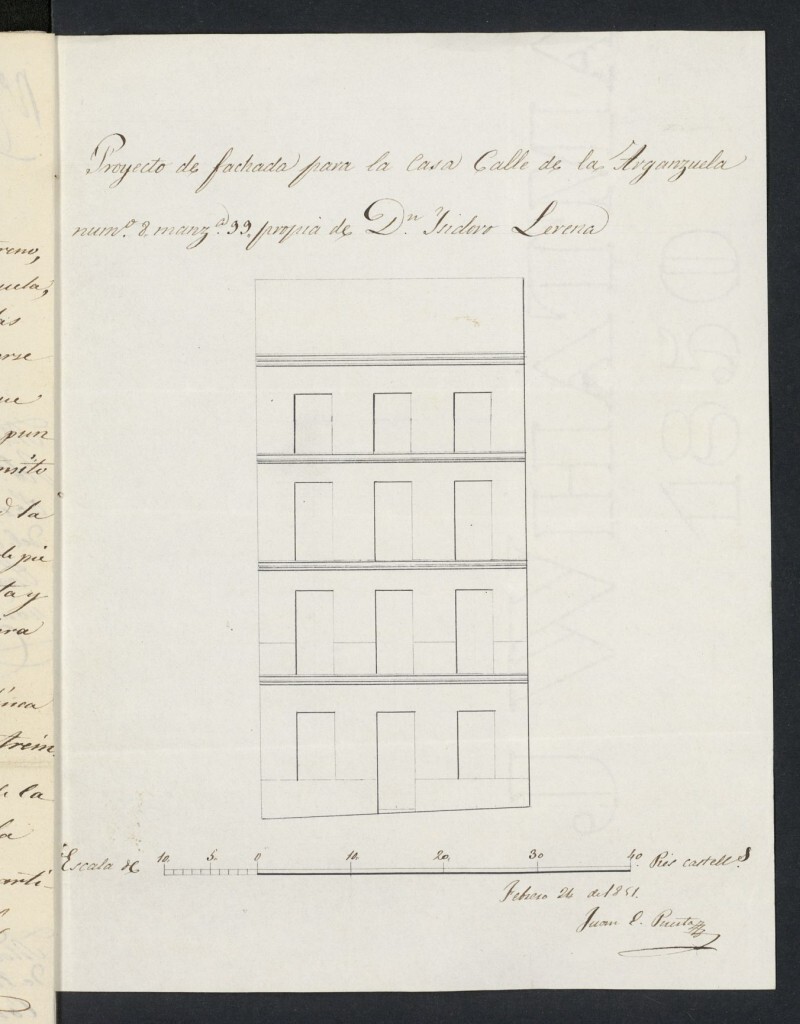 Proyecto de fachada para la casa Calle de la Arganzuela
num.º 8. manz.ª 99. propia de D.n Isidoro Lerena
Escala de 10. 5. 0 10. 20. 30 40. Pies castell.s
Febrero 26 de 1851.
Juan E. Puerta
reno,
uela,
las
erse
que
pun
nsito
d la
de pie
ta y
era
inea
trein
de la
la
anti-